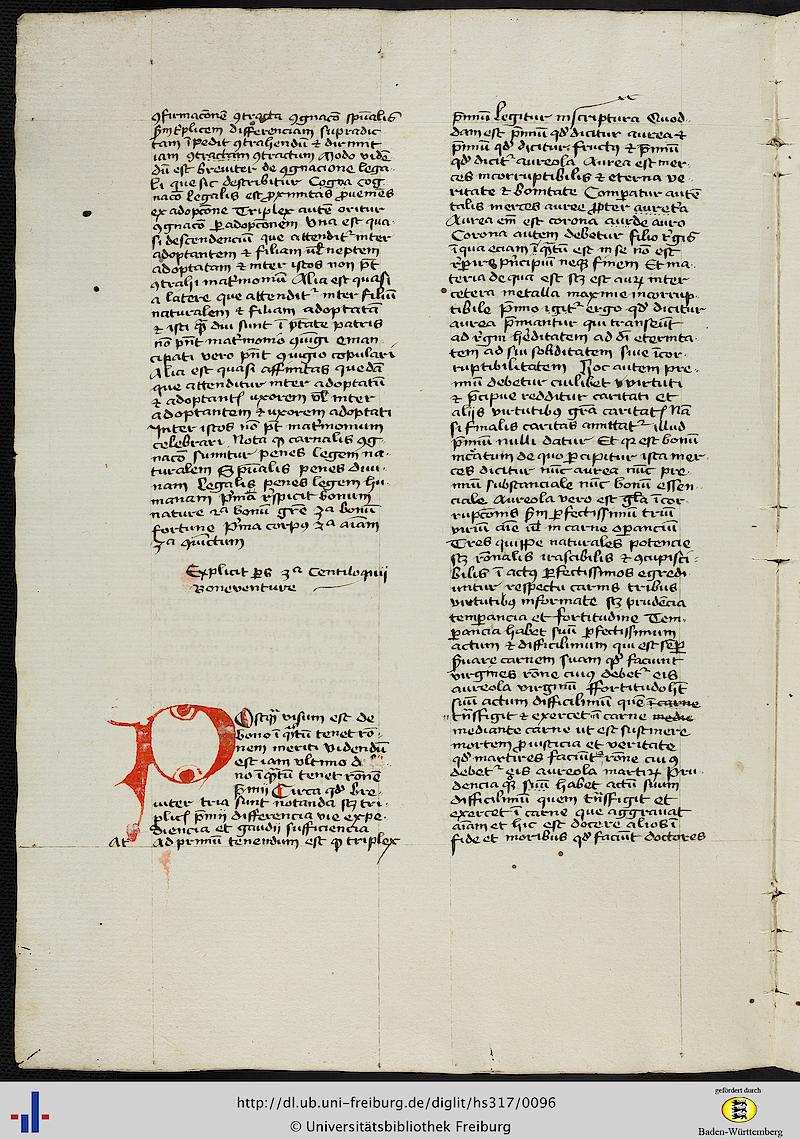 ꝯfirmacōnē ꝯtracta ꝯgnacō spūalis
scdm tͥplicem differenciam supradic
tam īpedit ꝯtrahendū ⁊ dirimit
iam ꝯtractam ꝯtractum Modo vidē
dū est breviter de ꝯgnacione lega
li que sic describitur Cogna cog
nacō legalis est ꝓximitas ꝓveniēs
ex adopcōne Triplex autē oritur
ꝯgnacō ꝑ adopcōnem Una est qua
si descendenciū que attenditͬ inter
adoptantem ⁊ filiam vel neptem
adoptatam ⁊ inter istos non pn̄t
ꝯtrahi mat'monium Alia est quasi
a latere que attenditͬ inter filiū
naturalem ⁊ filiam adoptatā
⁊ isti qn̄ diu sunt ī ptāte patris
nō pn̄t mat'monio ꝯiūgi eman
cipati vero pn̄t ꝯiugio copulari
Alia est quasi affinitas quedā
que attenditur inter adoptatū
⁊ adoptantis uxorem vel inter
adoptantem ⁊ uxorem adoptati
Inter istos nō pt mat'monium
celebrari Nota ꝙ carnalis ꝯg
nacō sumitur penes legem na
turalem Spūalis penes divi
nam Legalis penes legem hu
manam Prima respicit bonum
nature 2ᵃ bonū grē 3ᵃ bonū
fortune Prima corpus 2ᵃ aīam
3ᵃ ꝯiunctum
Explicit ps 3ᵃ Centiloquii
Boneventure
Postqͣ visum est de
bono ī qͣntū tenet rō
nem meriti videndū
est iam ultimo d
no ī qͣntū tenet rōnē
pͥmii Circa qd bre
viter tria sunt notanda scz tri
plicis pͥmii differencia vie expe
diencia et gaudii sufficiencia
At Ad primum tenendum est ꝙ triplex
pͥmiū legitur in scriptura Quod
dam est pͥmiū qd dicitur aurea ⁊
pͥmiū qd dicitur fructus ⁊ pͥmiū
qd dicitͬ aureola Aurea est mer
ces incorruptibilis ⁊ eterna ve
ritate ⁊ bonitate Compatur autē
talis merces auree ꝓpter
Aurea em̄ est corona de auro
Corona autem debetur filio regis
ī qua eciam ī qͣntū est in se nō est
reperire pͥncipiū neqꝫ finem Et ma
teria de qua est scz est aurꝫ inter
cetera metalla maxime incorrup
tibile pͥmio igitͬ ergo qd dicitur
aurea pͥmiantur qui transeūt
ad regni hereditatem ad dei eternita
tem ad sui soliditatem sive īcor
ruptibilitatem Hoc autem pre
miū debetur cuilibet virtuti
⁊ pͥcipue redditur caritati et
aliis virtutibꝰ grā caritatis Nā
si finalis caritas amittatͬ illud
pͥmiū nulli datur Et qꝛ est bonū
īncātum de quo ꝑcipitur ista mer
ces dicitur nūc aurea nūc pre
miū substanciale nūc bonū essen
ciale Aureola vero est gla īcor
rupcōnis scdm ꝑfectissimū triū
viriū aīe ul in carne operanciū
Tres quippe naturales potencie
scz rōnalis irascibilis ⁊ ꝯcupisci
bilis ī actꝰ ꝑfectissimos egredi
untur respectu carnis tribus
virtutibꝰ informate scz prudēcia
temperancia et fortitudine Tem
perancia habet suū ꝑfectissimum
actum ⁊ difficilimum qui est semp
servare carnem suam qd faciunt
virgines rōne cuiꝰ debetͬ eis
aureola virginū Fortitudo hēt
suū actum difficilimū quē ī carne
tn̄sfigit ⁊ exercet ī carne medie
mediante carne ut est sustinere
mortem ꝓ iusticia et veritate
qd martires faciūtͬ rōne cuiꝰ
debetͬ eis aureola martirꝫ Pru
dencia qꝫ suū habet actū suum
difficilimū quem tn̄sfigit et
exercet ī carne que aggravat
aīam et hic est docere alios ī
fide et moribus qd faciūt doctores
http://dl.ub.uni-freiburg.de/diglit/hs317/0096
© Universitätsbibliothek Freiburg
gefördert durch
Baden-Württemberg